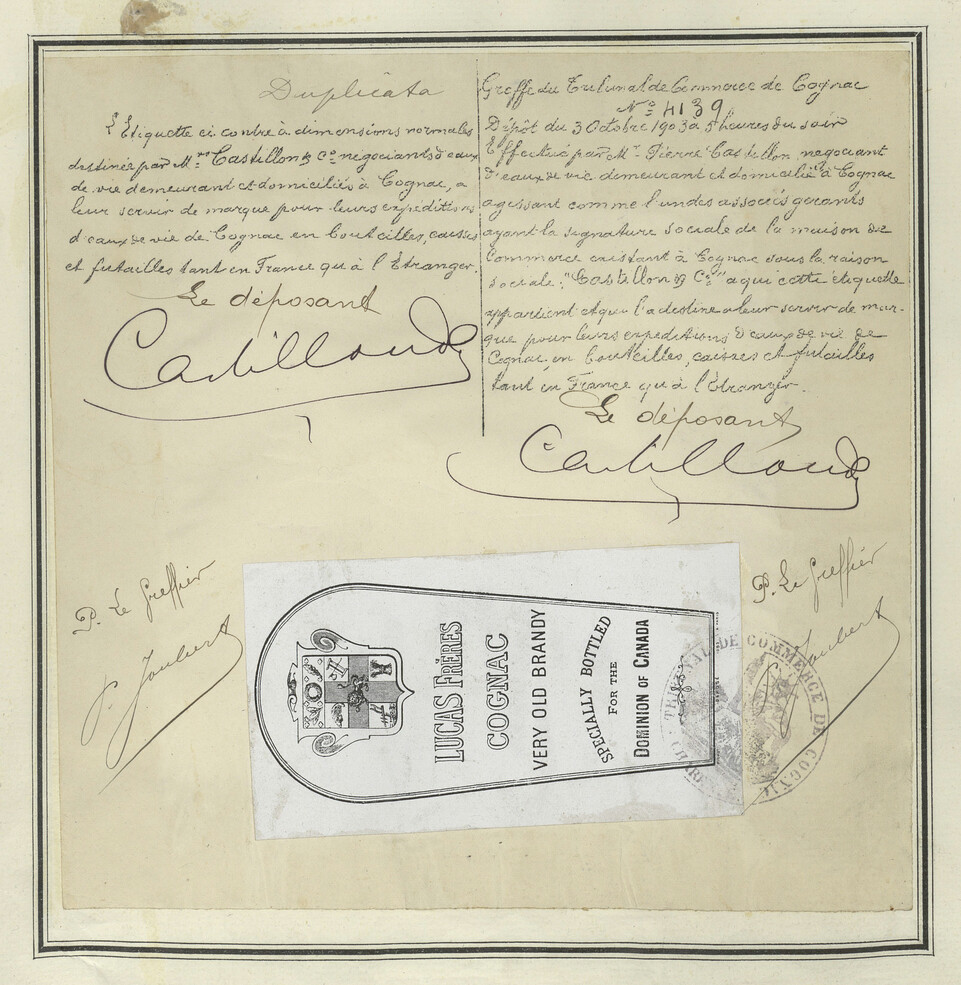 Duplicata
L'Etiquette ci contre à dimensions normales
destinée par M.rs Castillon & Co. negociants d'eaux
de vie demeurant et domiciliés à Cognac, a
leur servir de marque pour leurs expéditions
d'eaux de vie de Cognac en bouteilles, caisses
et futailles tant en France qu'à l'Etranger.
Le déposant
Castillon & Co
Greffe du Tribunal de Commerce de Cognac
No. 4139
Dépôt du 3 Octobre 1903 à 5 heures du soir
Effectué par Mr. Pierre Castillon, negociant
d'eaux de vie demeurant et domicilié à Cognac
agissant comme l'un des associés gérants
ayant la signature sociale de la maison de
Commerce existant à Cognac sous la raison
sociale: "Castillon & Co." a qui cette étiquette
appartient et qui l'a destine a leur servir de mar-
que pour leurs expeditions d'eaux de vie de
Cognac en bouteilles, caisses et futailles
tant en France qu'à l'Etranger.
Le déposant
Castillon & Co
P. Le Greffier
P. Joubert
LUCAS FRÈRES
COGNAC
VERY OLD BRANDY
SPECIALLY BOTTLED
FOR THE
DOMINION OF CANADA
P. Le Greffier
Joubert
TRIBUNAL DE COMMERCE DE COGNAC